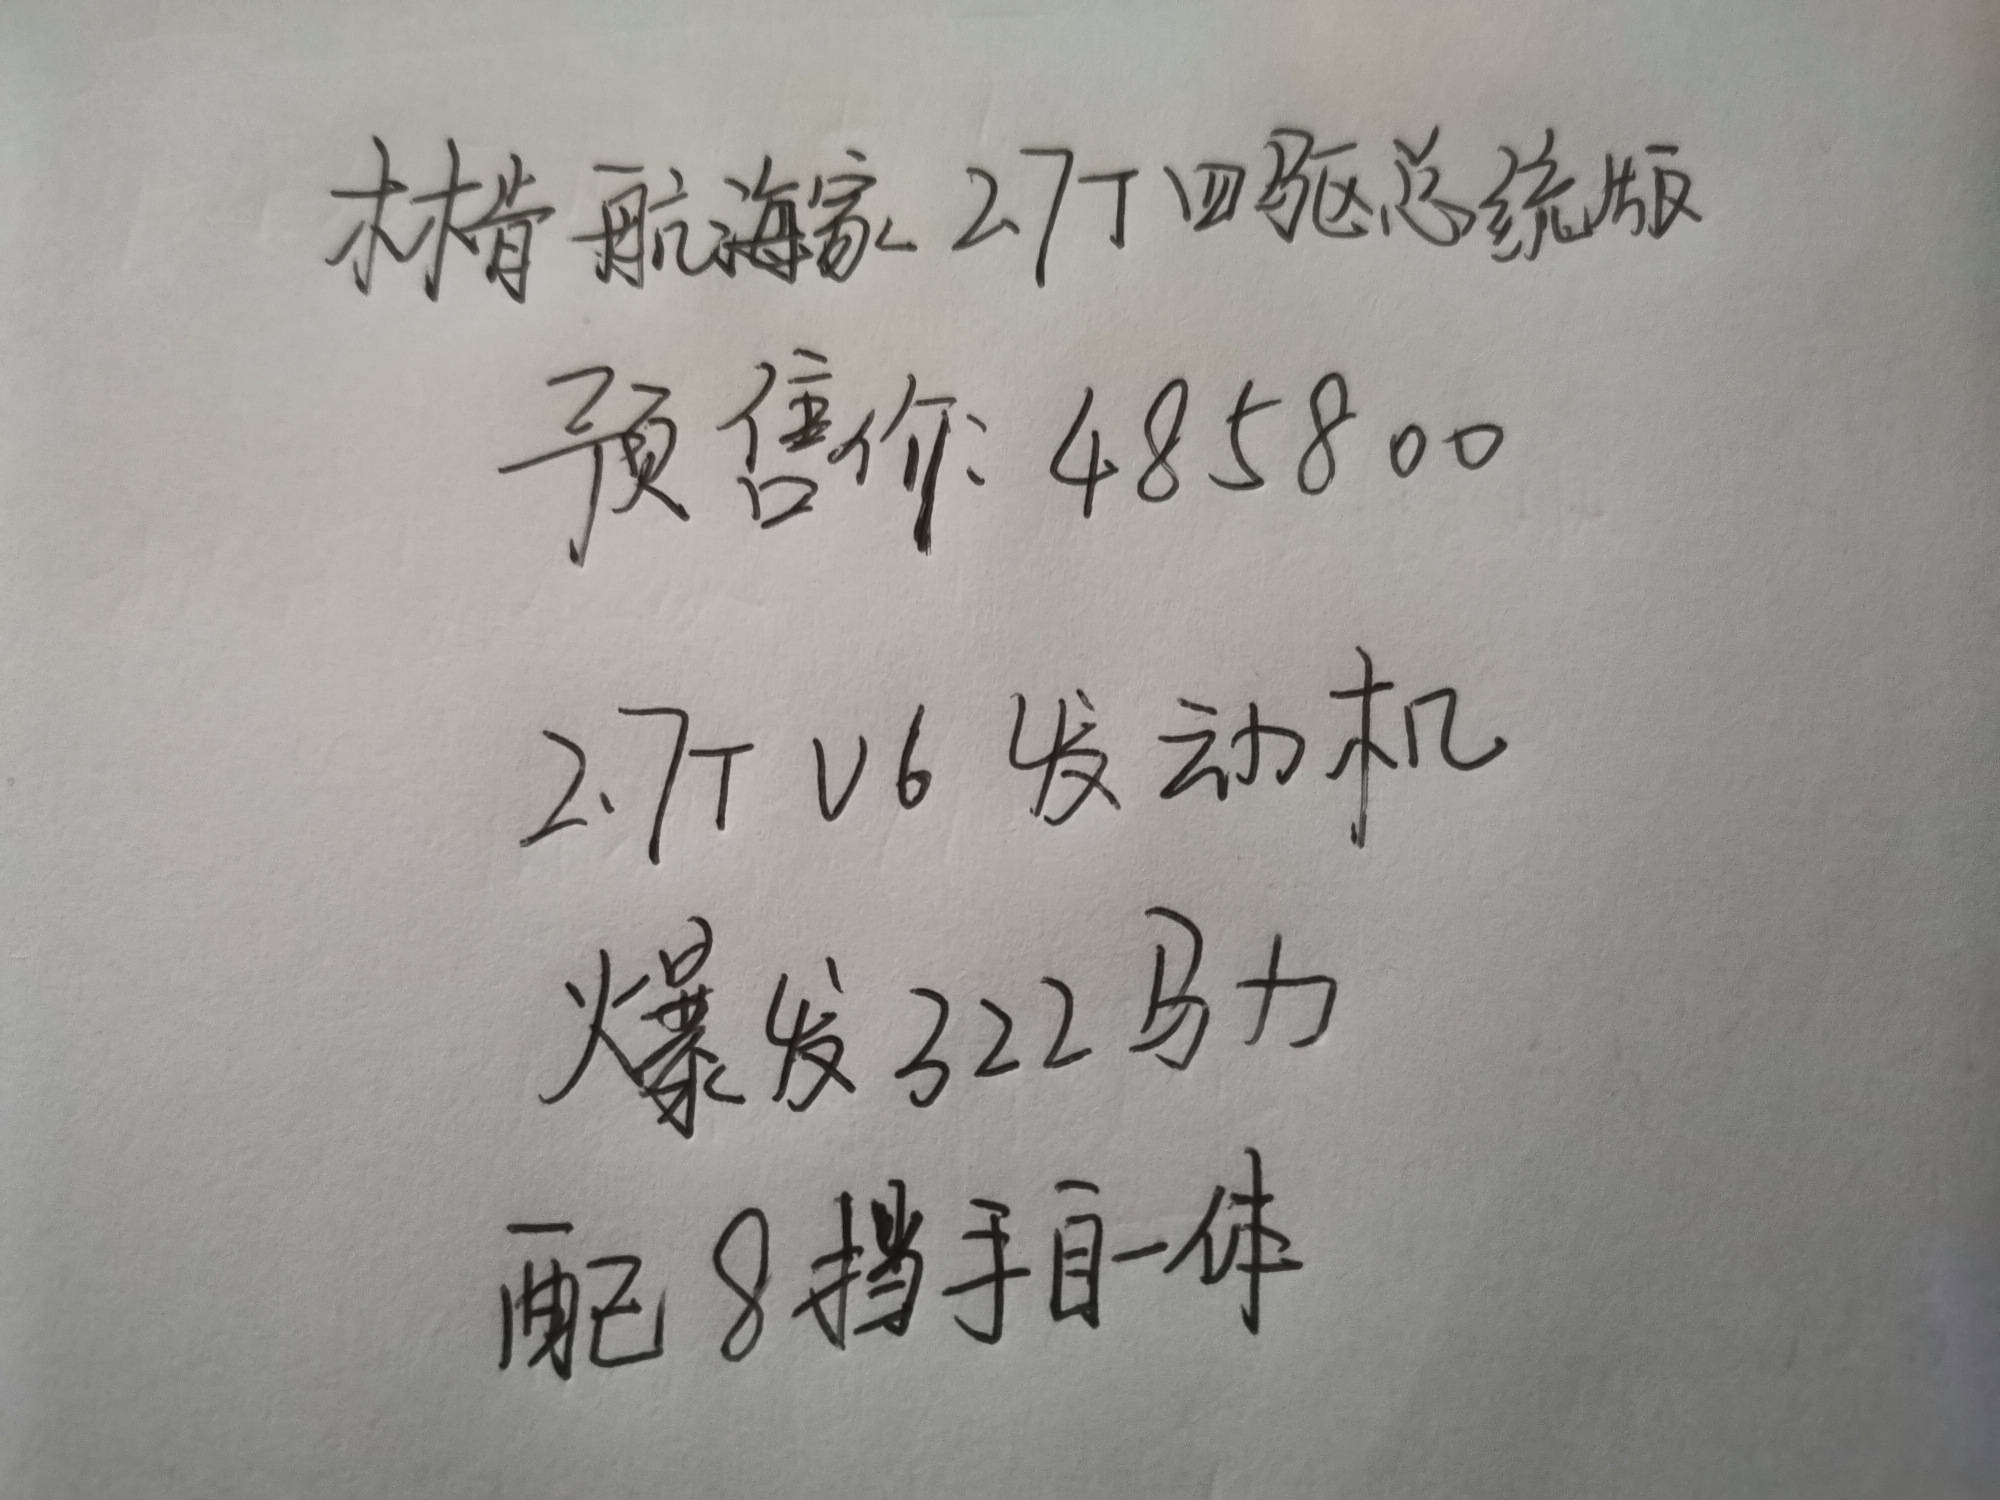 林肯航海家2.7T四驱总统版
预售价:485800
2.7T V6 发动机
爆发322马力
配8挡手自一体